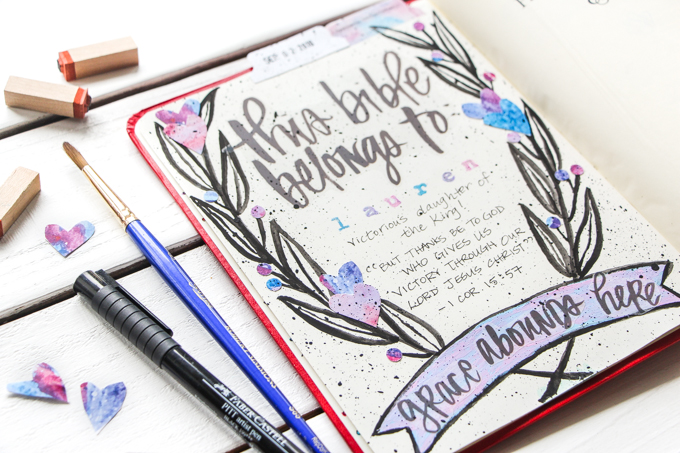 SEP 02 2016
this bible
belongs to
lauren
victorious daughter of
the King!
"BUT THANKS BE TO GOD
WHO GIVES US
VICTORY THROUGH OUR
LORD JESUS CHRIST"
- 1 COR 15:57
grace abounds here
FABER-CASTELL
PITT artist pen